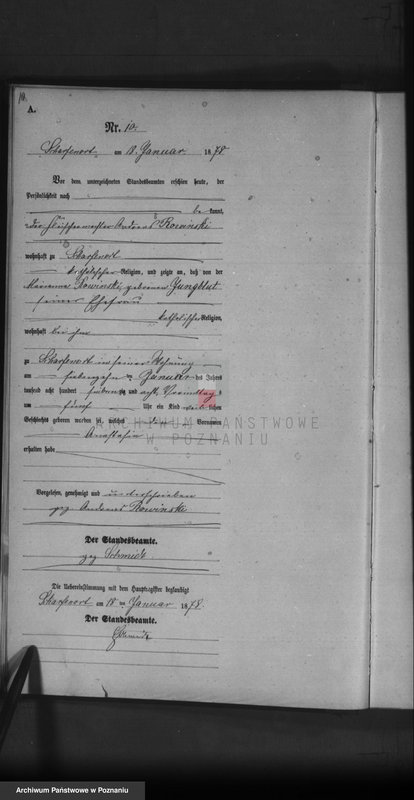 10.
A.
Nr. 10.
Scharfenort am 18. Januar 1878
Vor dem unterzeichneten Standesbeamten erschien heute, der
Persönlichkeit nach
be kannt,
der Fleischermeister Andreas Rowinski
wohnhaft zu Scharfenort
katholischer Religion, und zeigte an, daß von der
Marianna Rowinski, geborenen Jungblut
seiner Ehefrau
katholischer Religion,
wohnhaft bei ihm
zu Scharfenort in seiner Wohnung
am siebenzehn ten Januar des Jahres
tausend acht hundert siebenzig und acht, Vormittags
um fünf Uhr ein Kind weiblichen
Geschlechts geboren worden sei, welches Vornamen
Anastasia
erhalten habe
Vorgelesen, genehmigt und unterschrieben
gez Andreas Rowinski
Der Standesbeamte.
gez Schmidt
Die Uebereinstimmung mit dem Hauptregister beglaubigt
Scharfenort am 18 ten Januar 1878.
Der Standesbeamte.
Schmidt
ARCHIWUM PAŃSTWOWE
W POZNANIU
Archiwum Państwowe w Poznaniu